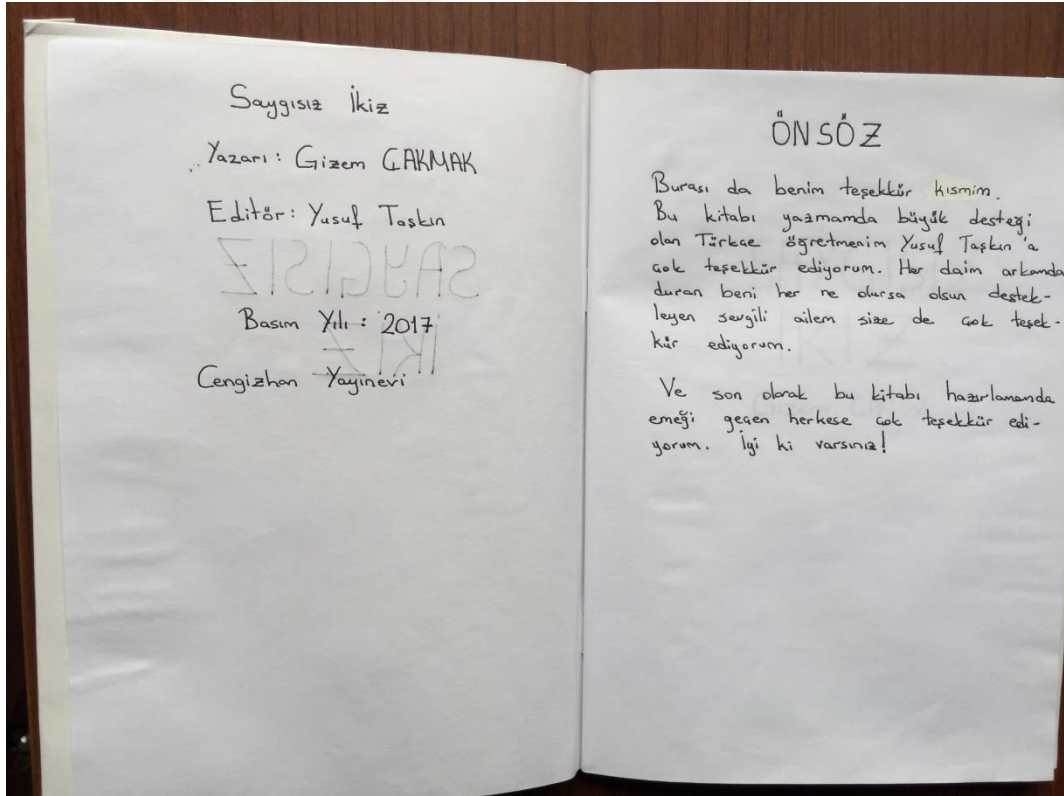 Saygısız İkiz
Yazarı : Gizem ÇAKMAK
Editör : Yusuf Taşkın
SAYGISIZ
Basım Yılı : 2017
İKİZ
Cengizhan Yayınevi
ÖNSÖZ
Burası da benim teşekkür kısmim.
Bu kitabı yazmamda büyük desteği
olan Türkçe öğretmenim Yusuf Taşkın'a
çok teşekkür ediyorum. Her daim arkamda
duran beni her ne olursa olsun destek-
leyen sevgili ailem size de çok teşek-
kür ediyorum.
Ve son olarak bu kitabı hazırlamamda
emeği geçen herkese çok teşekkür edi-
yorum. İyi ki varsınız!